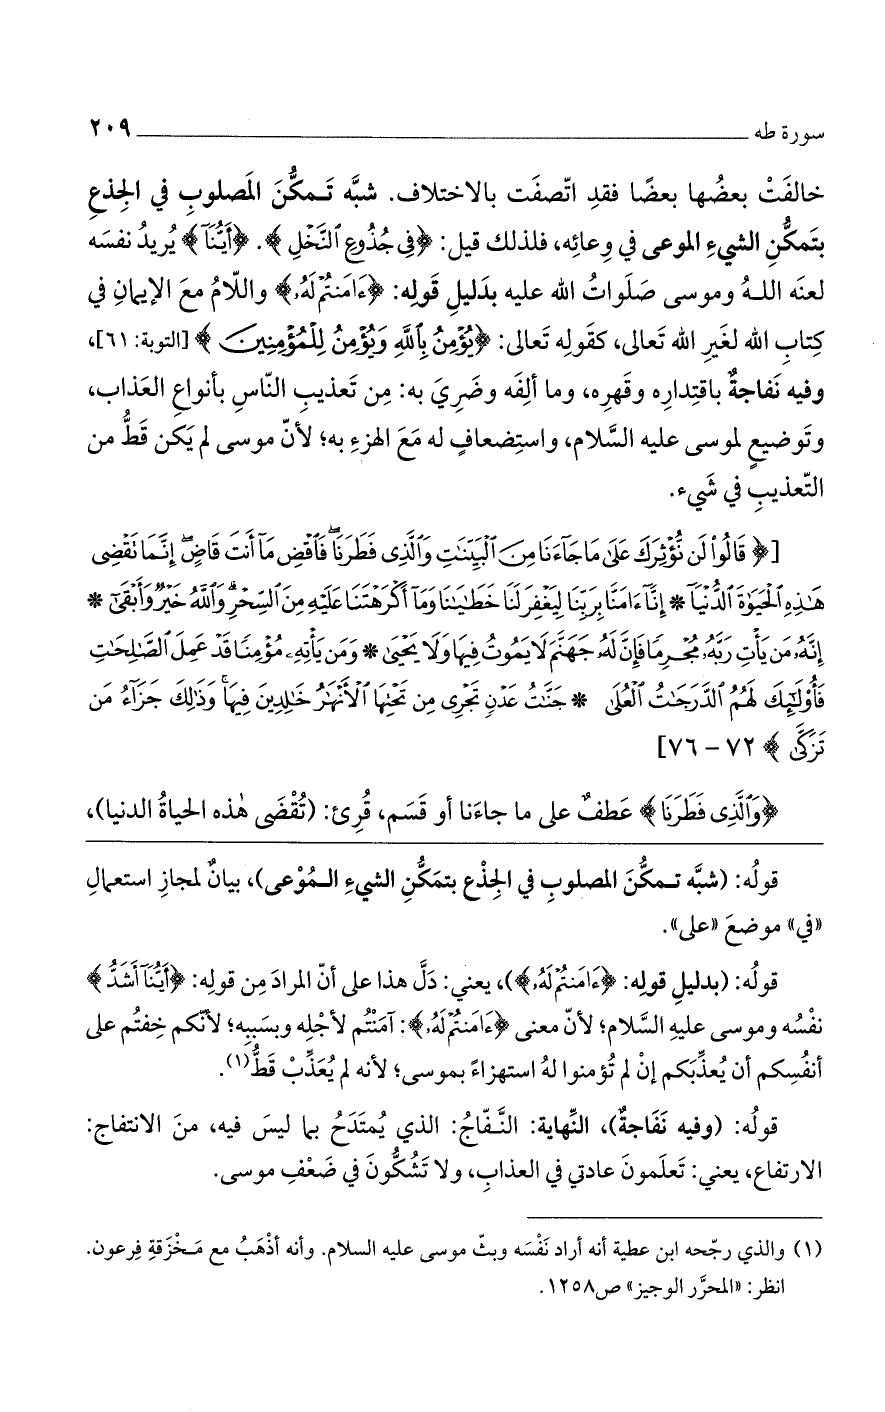 سورة طه ٢٠٩
خالفَتْ بعضُها بعضًا فقدِ اتّصفَت بالاختلاف. شبَّه تَـمكُّنَ المَصلوبِ في الجِذعِ
بتَمكُّنِ الشيءِ الموعى في وِعائِه، فلذلك قيل: ﴿فِى جُذُوعِ ٱلنَّخْلِ﴾. ﴿أَيُّنَآ﴾ يُريدُ نفسَه
لعنَه اللـهُ وموسى صَلَواتُ الله عليه بدَليلِ قَولِه: ﴿ءَامَنتُمْ لَهُۥ﴾ واللّامُ معَ الإيمانِ في
كِتابِ الله لغَيرِ الله تَعالى، كقَولِه تَعالى: ﴿يُؤْمِنُ بِٱللَّهِ وَيُؤْمِنُ لِلْمُؤْمِنِينَ﴾ [التوبة: ٦١]،
وفيه نَفاجةٌ باقتِدارِه وقَهرِه، وما ألِفَه وضَرِيَ به: مِن تَعذيبِ النّاسِ بأنواعِ العَذاب،
وتَوضيعٍ لموسى عليه السَّلام، واستِضعافٍ له مَعَ الهزءِ به؛ لأنّ موسى لم يَكن قطُّ من
التّعذيبِ في شَيء.
[﴿قَالُوا۟ لَن نُّؤْثِرَكَ عَلَىٰ مَا جَآءَنَا مِنَ ٱلْبَيِّنَٰتِ وَٱلَّذِى فَطَرَنَا ۖ فَٱقْضِ مَآ أَنتَ قَاضٍ ۖ إِنَّمَا نَقْضِى
هَٰذِهِ ٱلْحَيَوٰةَ ٱلدُّنْيَآ * إِنَّآ ءَامَنَّا بِرَبِّنَا لِيَغْفِرَ لَنَا خَطَٰيَٰنَا وَمَآ أَكْرَهْتَنَا عَلَيْهِ مِنَ ٱلسِّحْرِ ۗ وَٱللَّهُ خَيْرٌ وَأَبْقَىٰٓ *
إِنَّهُۥ مَن يَأْتِ رَبَّهُۥ مُجْرِمًا فَإِنَّ لَهُۥ جَهَنَّمَ لَا يَمُوتُ فِيهَا وَلَا يَحْيَىٰ * وَمَن يَأْتِهِۦ مُؤْمِنًا قَدْ عَمِلَ ٱلصَّٰلِحَٰتِ
فَأُو۟لَٰٓئِكَ لَهُمُ ٱلدَّرَجَٰتُ ٱلْعُلَىٰ * جَنَّٰتُ عَدْنٍ تَجْرِى مِن تَحْتِهَا ٱلْأَنْهَٰرُ خَٰلِدِينَ فِيهَا ۚ وَذَٰلِكَ جَزَآءُ مَن
تَزَكَّىٰ﴾ ٧٢ – ٧٦]
﴿وَٱلَّذِى فَطَرَنَا﴾ عَطفٌ على ما جاءَنا أو قَسَم، قُرِئ: (تُقْضَى هٰذه الحياةُ الدنيا)،
قولُه: (شبَّه تـمكُّنَ المصلوبِ في الجِذْع بتمَكُّنِ الشيءِ الـمُوْعى)، بيانٌ لمجازِ استعمالِ
«في» موضعَ «على».
قولُه: (بدليلِ قولِه: ﴿ءَامَنتُمْ لَهُۥ﴾)، يعني: دَلَّ هذا على أنّ المرادَ مِن قولِه: ﴿أَيُّنَآ أَشَدُّ﴾
نفْسُه وموسى عليهِ السَّلام؛ لأنّ معنى ﴿ءَامَنتُمْ لَهُۥ﴾: آمَنْتُم لأجْلِه وبسَببِه؛ لأنّكم خِفتُم على
أنفُسِكم أن يُعذِّبَكم إنْ لم تُؤمنوا لهُ استهزاءً بموسى؛ لأنه لم يُعَذِّبْ قَطُّ(١).
قولُه: (وفيه نَفَاجةٌ)، النِّهاية: النَّـفّاجُ: الذي يُمتَدَحُ بما ليسَ فيه، منَ الانتفاج:
الارتفاع، يعني: تَعلَمونَ عادتي في العذابِ، ولا تَشُكُّونَ في ضَعْفِ موسى.
(١) والذي رجّحه ابن عطية أنه أراد نَفْسَه وبثّ موسى عليه السلام. وأنه أذْهَبُ مع مَـخْرَقةِ فِرعون.
انظر: «المحرَّر الوجيز» ص١٢٥٨.